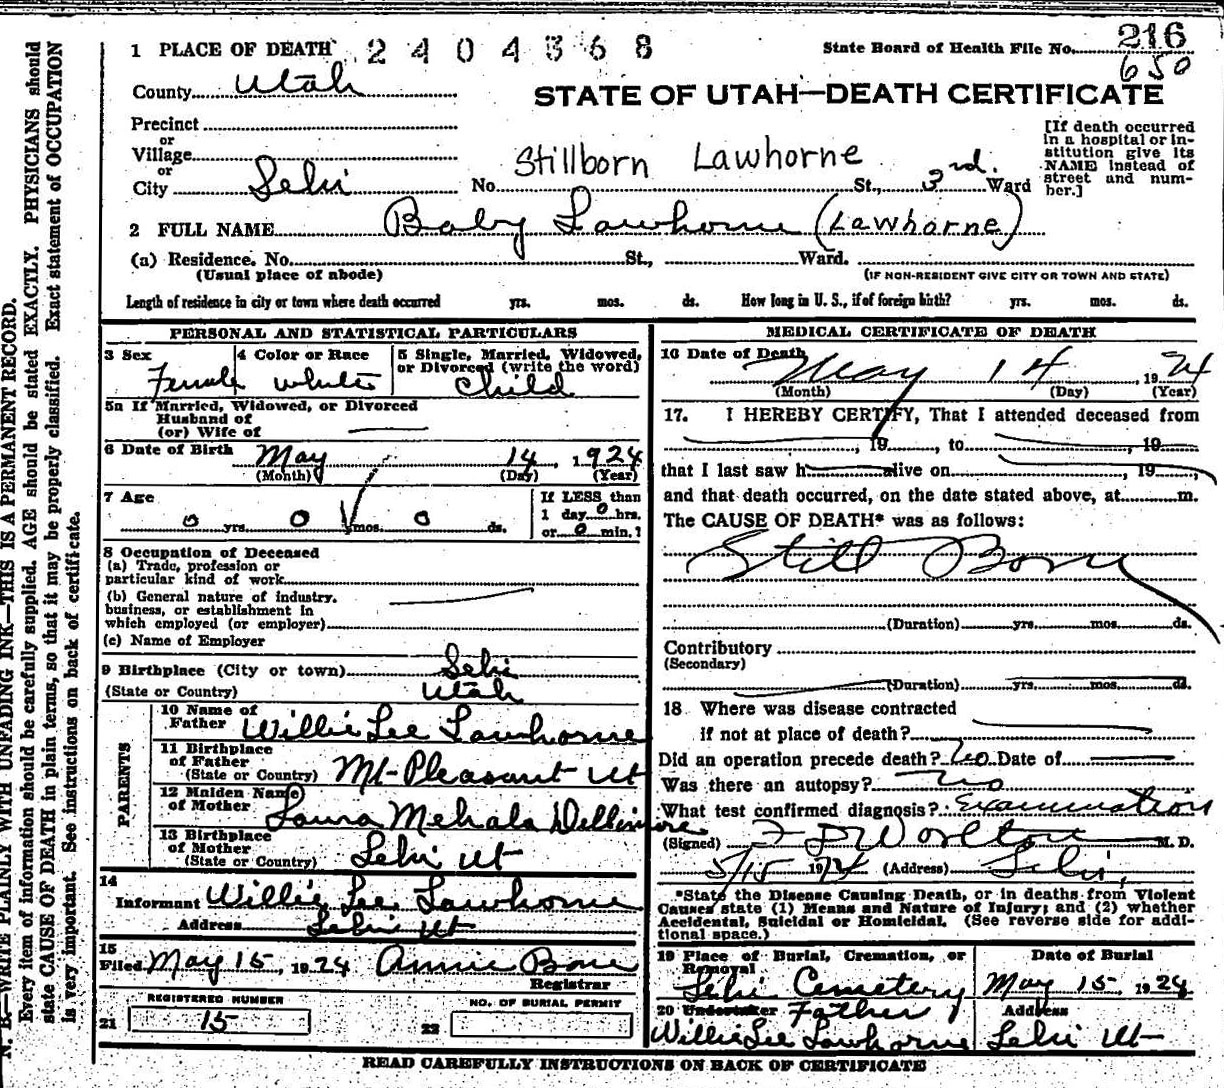 1 PLACE OF DEATH 2404368 State Board of Health File No. 216
650
County Utah
STATE OF UTAH—DEATH CERTIFICATE
Precinct
or
Village
or
City Lehi No. Stillborn Lawhorne St., 3rd. Ward
[If death occurred
in a hospital or in-
stitution give its
NAME instead of
street and num-
ber.]
2 FULL NAME Baby Lawhorne (Lawhorne)
(a) Residence. No. St., Ward.
(Usual place of abode) (IF NON-RESIDENT GIVE CITY OR TOWN AND STATE)
Length of residence in city or town where death occurred yrs. mos. ds. How long in U. S., if of foreign birth? yrs. mos. ds.
PERSONAL AND STATISTICAL PARTICULARS
3 Sex 4 Color or Race 5 Single, Married, Widowed,
or Divorced (write the word)
Female White Child
5a If Married, Widowed, or Divorced
Husband of
(or) Wife of
6 Date of Birth May 14, 1924
(Month) (Day) (Year)
7 Age If LESS than
0 yrs. 0 mos. 0 ds. 1 day 0 hrs.
or 0 min.?
8 Occupation of Deceased
(a) Trade, profession or
particular kind of work
(b) General nature of industry,
business, or establishment in
which employed (or employer)
(c) Name of Employer
9 Birthplace (City or town) Lehi
(State or Country) Utah
PARENTS
10 Name of
Father Willie Lee Lawhorne
11 Birthplace
of Father
(State or Country) Mt-Pleasant Ut
12 Maiden Name
of Mother Laura Mehala Dellimore
13 Birthplace
of Mother
(State or Country) Lehi Ut
14
Informant Willie Lee Lawhorne
Address Lehi Ut
15
Filed May 15, 1924 Annie Bone
Registrar
REGISTERED NUMBER NO. OF BURIAL PERMIT
21 15 22
MEDICAL CERTIFICATE OF DEATH
16 Date of Death May 14, 1924
(Month) (Day) (Year)
17. I HEREBY CERTIFY, That I attended deceased from
, 19 , to , 19
that I last saw h alive on , 19
and that death occurred, on the date stated above, at m.
The CAUSE OF DEATH* was as follows:
Still Born
(Duration) yrs. mos. ds.
Contributory
(Secondary)
(Duration) yrs. mos. ds.
18 Where was disease contracted
if not at place of death?
Did an operation precede death? No Date of
Was there an autopsy? No
What test confirmed diagnosis? Examination
(Signed) F D Worlton M. D.
5/15 1924 (Address) Lehi,
*State the Disease Causing Death, or in deaths from Violent
Causes state (1) Means and Nature of Injury; and (2) whether
Accidental, Suicidal or Homicidal. (See reverse side for addi-
tional space.)
19 Place of Burial, Cremation, or Date of Burial
Removal
Lehi Cemetery May 15, 1924
20 Undertaker Father Address
Willie Lee Lawhorne Lehi Ut
READ CAREFULLY INSTRUCTIONS ON BACK OF CERTIFICATE
N. B.—WRITE PLAINLY WITH UNFADING INK—THIS IS A PERMANENT RECORD.
Every item of information should be carefully supplied. AGE should be stated EXACTLY. PHYSICIANS should
state CAUSE OF DEATH in plain terms, so that it may be properly classified. Exact statement of OCCUPATION
is very important. See instructions on back of certificate.